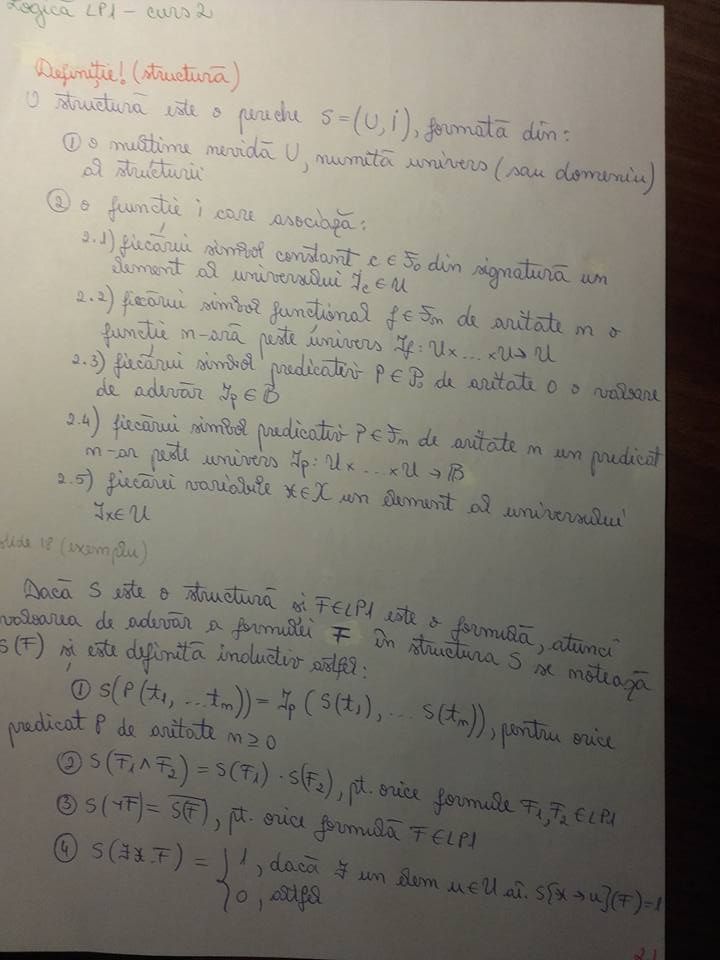 Logică LP1 - curs 2
Definiție! (structură)
O structură este o pereche S=(U,i), formată din:
① o mulțime nevidă U, numită univers (sau domeniu)
al structurii
② o funcție i care asociază:
2.1) fiecărui simbol constant c ∈ F₀ din signatură un
element al universului I_c ∈ U
2.2) fiecărui simbol funcțional f ∈ F_n de aritate n o
funcție n-ară peste univers I_f : U×...×U→U
2.3) fiecărui simbol predicativ P ∈ P₀ de aritate 0 o valoare
de adevăr I_p ∈ B
2.4) fiecărui simbol predicativ P ∈ F_n de aritate n un predicat
n-ar peste univers I_p : U×...×U → B
2.5) fiecărei variabile x ∈ X un element al universului
I_x ∈ U
slide 18 (exemplu)
Dacă S este o structură și F∈LP1 este o formulă, atunci
valoarea de adevăr a formulei F în structura S se notează
S(F) și este definită inductiv astfel:
① S(P(t₁, ...t_n)) = I_p (S(t₁), ... S(t_n)), pentru orice
predicat P de aritate n ≥ 0
② S(F₁ ∧ F₂) = S(F₁) · S(F₂), pt. orice formule F₁, F₂ ∈ LP1
③ S(¬F) = \overline{S(F)}, pt. orice formulă F∈LP1
④ S(∃x.F) = { 1, dacă ∃ un elem u∈U a.î. S[x→u](F)=1
0, astfel
21